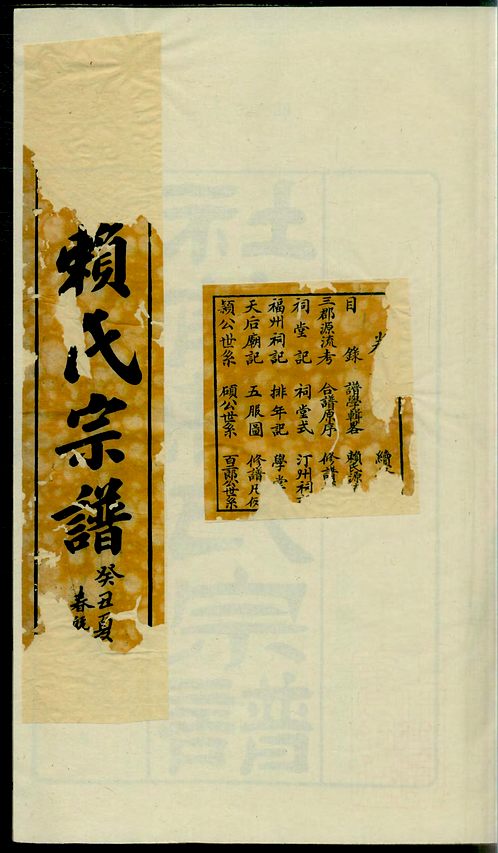 賴氏宗譜
癸丑夏
春
目錄 譜學輯畧 賴氏源
三郡源流考 合譜原序 修譜
祠堂記 祠堂式 汀州祠
福州祠記 排年記 學堂
天后廟記 五服圖 修譜凡
頴公世系 碩公世系 百郎公世系